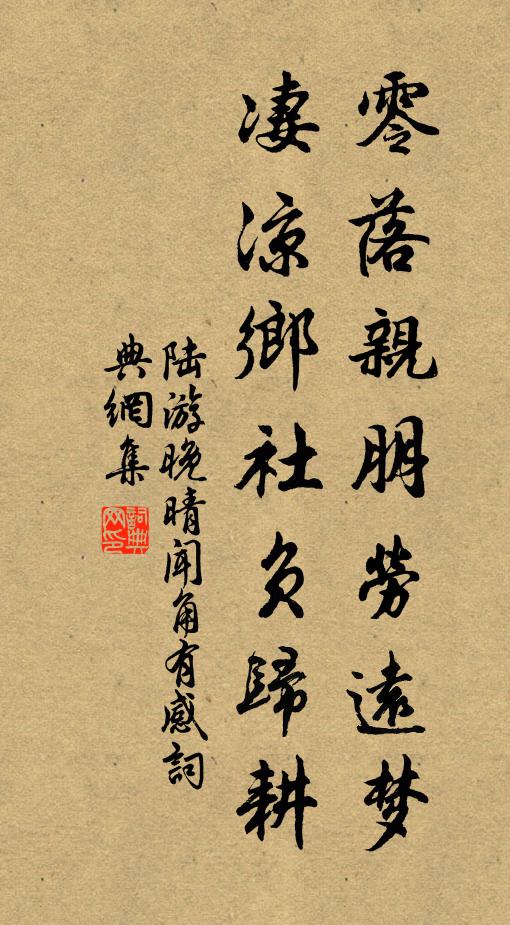 零落親朋勞遠梦
凄涼鄉社負歸耕
陆游晚晴闻角有感詞
典網集
詞典网印